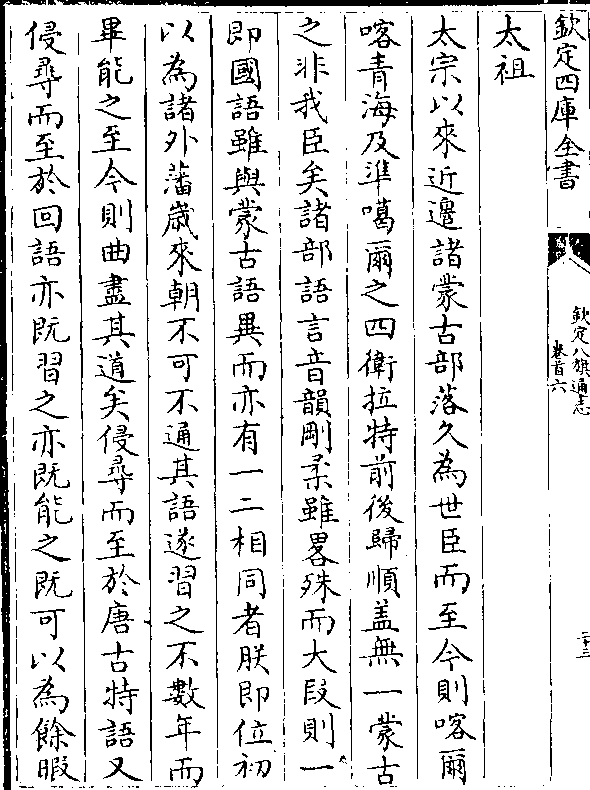 欽定四庫全書
欽定八旗通志
卷首六
二十三
太祖
太宗以來近邊諸蒙古部落久為世臣而至今則喀爾
喀青海及準噶爾之四衛拉特前後歸順蓋無一蒙古
之非我臣矣諸部語言音韻剛柔雖畧殊而大段則一
即國語雖與蒙古語異而亦有一二相同者朕即位初
以為諸外藩歲來朝不可不通其語遂習之不數年而
畢能之至今則曲盡其道矣侵尋而至於唐古特語又
侵尋而至於回語亦既習之亦既能之既可以為餘暇